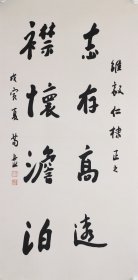 維敏仁棣正之
志存高遠
襟懷澹泊
戊寅夏